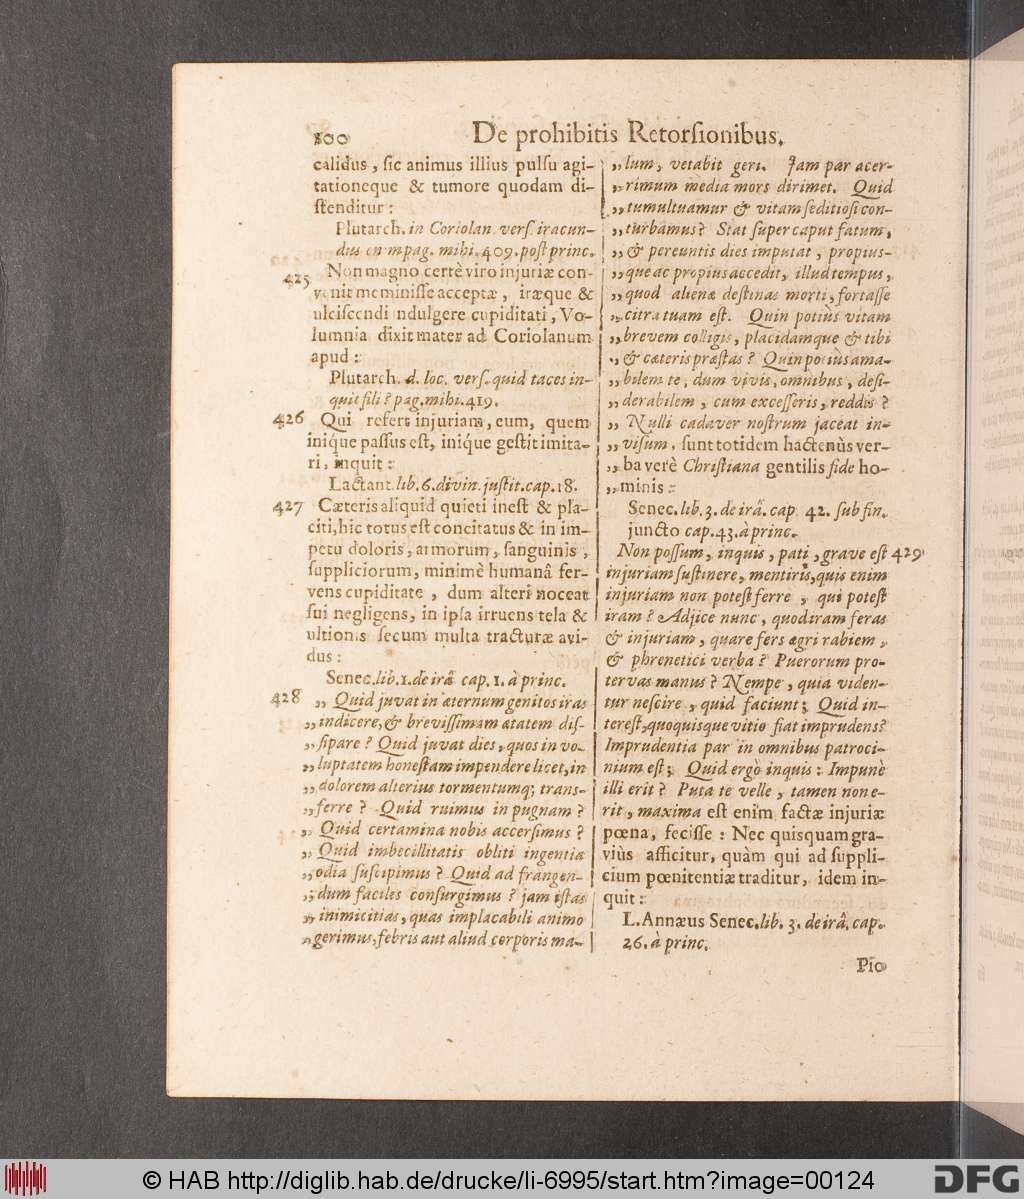 100 De prohibitis Retorsionibus.
calidus, sic animus illius pulsu agi-
tationeque & tumore quodam di-
stenditur:
Plutarch. in Coriolan. vers. iracun-
dus pag. mihi. 409. post princ.
425 Non magno certè viro injuriæ con-
venit meminisse acceptæ, iræque &
ulciscendi indulgere cupiditati, Vo-
lumnia dixit mater ad Coriolanum
apud:
Plutarch. d. loc. vers. quid taces in-
quit fili? pag. mihi. 419.
426 Qui refert injuriam, eum, quem
iniq́ue passus est, iniq́ue gestit imita-
ri, inquit:
Lactant. lib. 6. divin. justit. cap. 18.
427 Cæteris aliquid quieti inest & pla-
citi, hic totus est concitatus & in im-
petu doloris, armorum, sanguinis,
suppliciorum, minimè humanâ fer-
vens cupiditate, dum alteri noceat
sui negligens, in ipsa irruens tela &
ultionis secum multa tracturæ avi-
dus:
Senec. lib. 1. de irâ cap. 1. à princ.
428 „ Quid juvat in æternum genitos iras
„ indicere, & brevissimam ætatem dis-
„ sipare? Quid juvat dies, quos in vo-
„ luptatem honestam impendere licet, in
„ dolorem alterius tormentumq; trans-
„ ferre? Quid ruimus in pugnam?
„ Quid certamina nobis accersimus?
„ Quid imbecillitatis obliti ingentia
„ odia suscipimus? Quid ad frangen-
„ dum faciles consurgimus? jam istas
„ inimicitias, quas implacabili animo
„ gerimus, febris aut aliud corporis ma-
„ lum, vetabit geri. Jam par acer-
„ rimum media mors dirimet. Quid
„ tumultuamur & vitam seditiosi con-
„ turbamus? Stat super caput fatum,
„ & pereuntis dies imputat, propius-
„ que ac propius accedit, illud tempus,
„ quod alienæ destinas morti, fortasse
„ citra tuam est. Quin potiùs vitam
„ brevem colligis, placidamque & tibi
„ & cæteris præstas? Quin potiùs ama-
„ bilem te, dum vivis, omnibus, desi-
„ derabilem, cum excesseris, reddis?
„ Nulli cadaver nostrum jaceat in-
„ visum, sunt totidem hactenùs ver-
„ ba verè Christiana gentilis fide ho-
„ minis:
Senec. lib. 3. de irâ. cap. 42. sub fin.
juncto cap. 43. à princ.
Non possum, inquis, pati, grave est 429
injuriam sustinere, mentiris, quis enim
injuriam non potest ferre, qui potest
iram? Adjice nunc, quod iram feras
& injuriam, quare fers ægri rabiem,
& phrenetici verba? Puerorum pro-
tervas manus? Nempe, quia viden-
tur nescire, quid faciunt; Quid in-
terest, quo quisque vitio fiat imprudens?
Imprudentia par in omnibus patroci-
nium est; Quid ergò inquis: Impunè
illi erit? Puta te velle, tamen non e-
rit, maxima est enim factæ injuriæ
pœna, fecisse: Nec quisquam gra-
viùs afficitur, quàm qui ad suppli-
cium pœnitentiæ traditur, idem in-
quit:
L. Annæus Senec. lib. 3. de irâ. cap.
26. à princ.
Pio
© HAB http://diglib.hab.de/drucke/li-6995/start.htm?image=00124
DFG